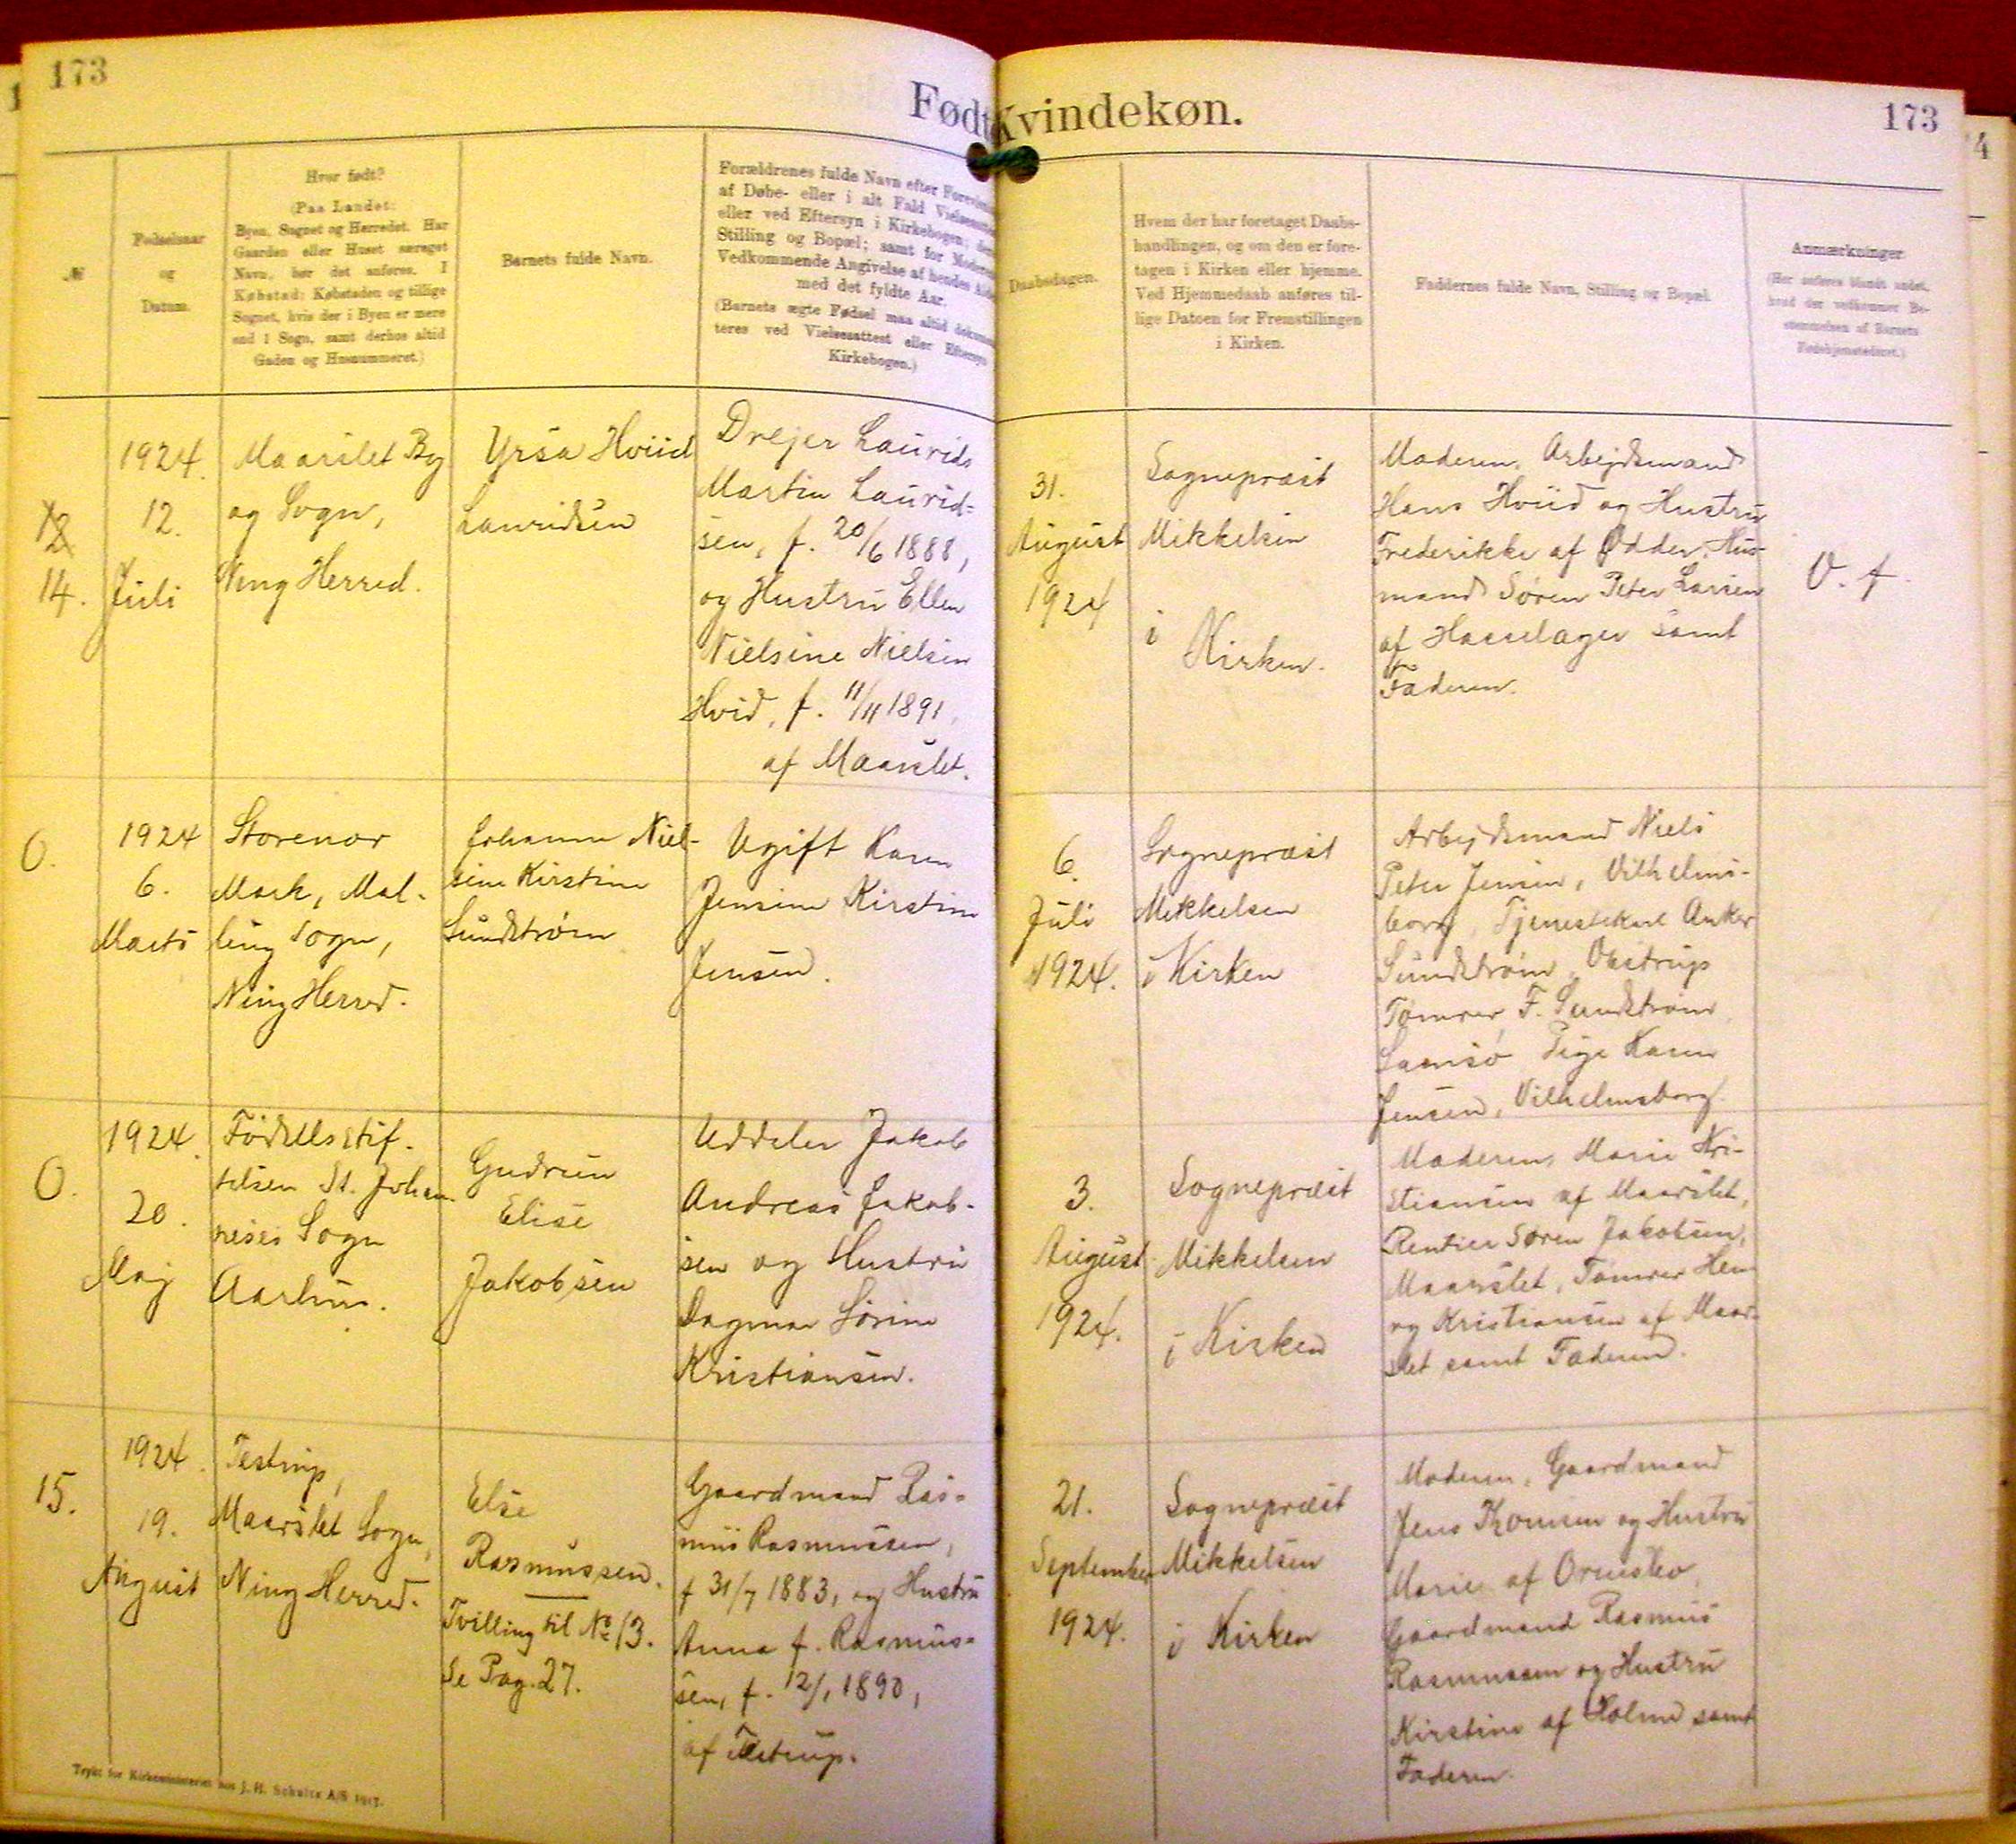 173
Født Kvindekøn.
173
№
Fødselsaar
og
Datum.
Hvor født?
(Paa Landet:
Byen, Sognet og Herredet. Har
Gaarden eller Huset særeget
Navn, bør det anføres. I
Købstad: Købstaden og tillige
Sognet, hvis der i Byen er mere
end 1 Sogn, samt derhos altid
Gaden og Husnummeret.)
Barnets fulde Navn.
Forældrenes fulde Navn efter
af Døbe- eller i alt Fald
eller ved Eftersyn i Kirkebogen;
Stilling og Bopæl; samt for
Vedkommende Angivelse af hendes
med det fyldte Aar.
(Barnets ægte Fødsel maa altid
teres ved Vielsesattest eller
Kirkebogen.)
Daabsdagen.
Hvem der har foretaget Daabs-
handlingen, og om den er fore-
tagen i Kirken eller hjemme.
Ved Hjemmedaab anføres til-
lige Datoen for Fremstillingen
i Kirken.
Faddernes fulde Navn, Stilling og Bopæl.
Anmærkninger.
(Her anføres blandt andet,
hvad der vedkommer Be-
stemmelsen af Barnets
Fødehjemstedsret.)
14.
1924.
12.
Juli
Maarslet By
og Sogn,
Ning Herred.
Yrsa Hviid
Lauridsen
Drejer Laurids
Martin Laurid-
sen, f. 20/6 1888,
og Hustru Ellen
Nielsine Nielsen
Hvid, f. 11/11 1891,
af Maarslet.
31.
August
1924
Sognepræst
Mikkelsen
i
Kirken.
Moderen, Arbejdsmand
Hans Hviid og Hustru
Frederikke af Odder, Hus-
mand Søren Peter Larsen
af Hasselager samt
Faderen.
V. f.
0.
1924
6.
Marts
Storenor
Mark, Mal-
ling Sogn,
Ning Herred.
Johanne Niel-
sine Kirstine
Sundstrøm
Ugift Karen
Jensine Kirstine
Jensen.
6.
Juli
1924.
Sognepræst
Mikkelsen
i Kirken
Arbejdsmand Niels
Peter Jensen, Vilhelms-
borg, Tjenestekarl Anker
Sundstrøm
Tømrer F. Sundstrøm
Samsø Pige Karen
Jensen, Vilhelmsborg.
0.
1924.
20.
Maj
Fødselsstif-
telsen St. Johan-
neses Sogn
Aarhus.
Gudrun
Elise
Jakobsen
Uddeler Jakob
Andreas Jakob-
sen og Hustru
Dagmar Sørine
Kristiansen.
3.
August
1924.
Sognepræst
Mikkelsen
i Kirken
Moderen, Marie Kri-
stiansen af Maarslet,
Rentier Søren Jakobsen,
Maarslet, Tømrer
og Kristiansen af Maar-
slet samt Faderen.
15.
1924.
19.
August
Testrup,
Maarslet Sogn,
Ning Herred.
Else
Rasmussen.
Tvilling til No 13.
Se Pag. 27.
Gaardmand Ras-
mus Rasmussen,
f 31/7 1883, og Hustru
Anna f. Rasmus-
sen, f. 12/1 1890,
af Testrup.
21.
September
1924.
Sognepræst
Mikkelsen
i Kirken
Moderen, Gaardmand
Jens og Hustru
Marie af Ormslev,
Gaardmand Rasmus
Rasmussen og Hustru
Kirstine af Holme samt
Faderen.
Trykt for Kirkeministeriet hos J. H. Schultz A/S 1917.